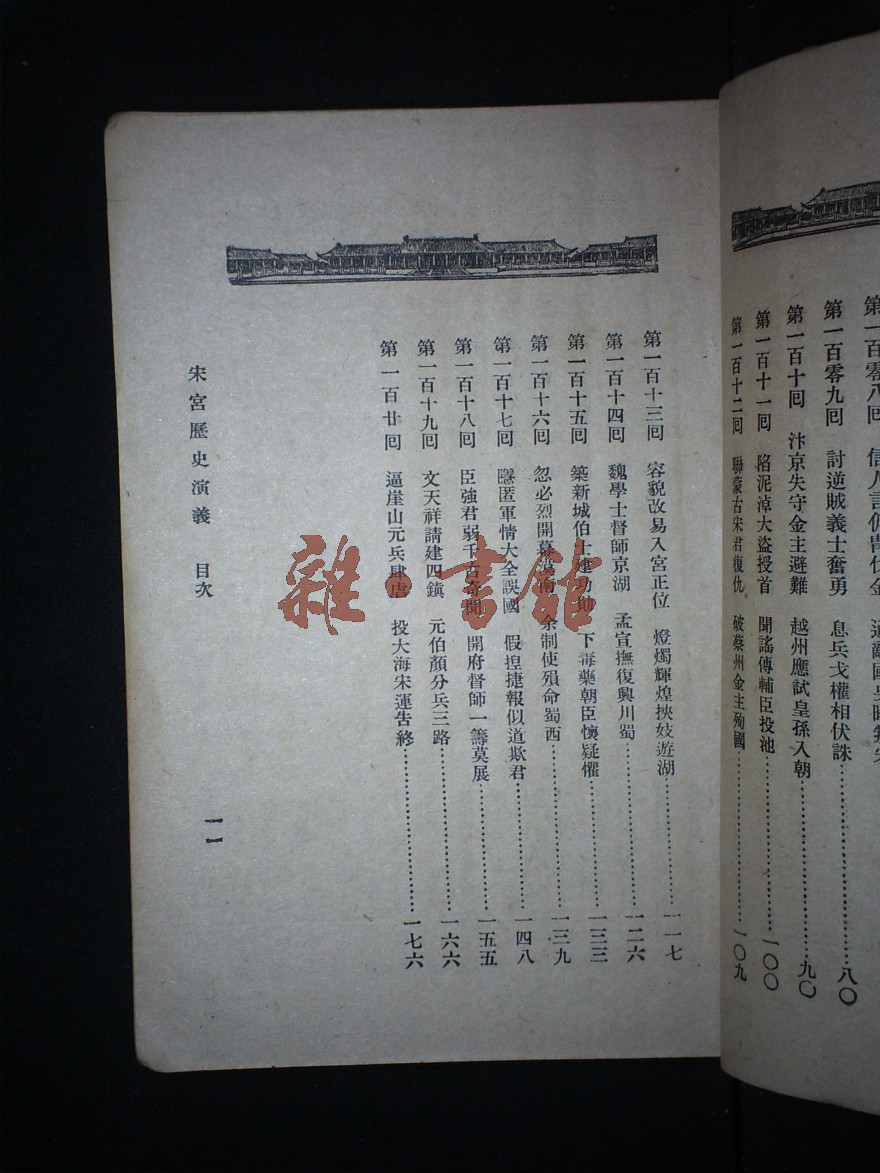 第一百零八囘
第一百零九囘 討逆賊義士奮勇 息兵戈權相伏誅……八〇
第一百十囘 汴京失守金主避難 越州應試皇孫入朝……九〇
第一百十一囘 陷泥淖大盜授首 聞謠傳輔臣投池……一〇〇
第一百十二囘 聯蒙古宋君復仇 破蔡州金主殉國……一〇九
第一百十三囘 容貌改易入宮正位 燈燭輝煌挾妓遊湖……一一七
第一百十四囘 魏學士督師京湖 孟宣撫復興川蜀……一二六
第一百十五囘 築新城伯士建功勛 下毒藥朝臣懷疑懼……一三三
第一百十六囘 忽必烈開幕漠南 余制使殞命蜀西……一三九
第一百十七囘 隱匿軍情大全誤國 假捏捷報似道欺君……一四八
第一百十八囘 臣強君弱千古奇聞 開府督師一籌莫展……一五五
第一百十九囘 文天祥請建四鎮 元伯顏分兵三路……一六六
第一百廿囘 逼崖山元兵肆虐 投大海宋運告終……一七六
宋宮歷史演義 目次
一一
雜·書館